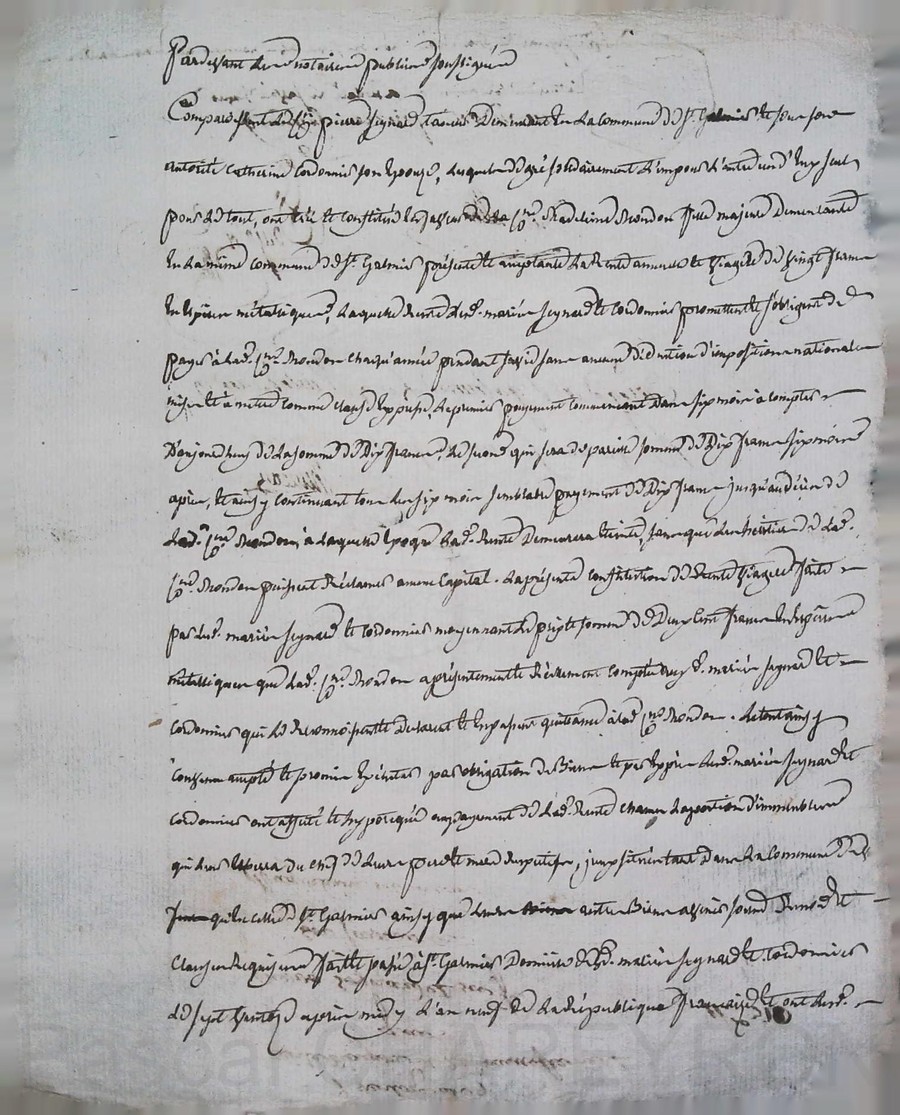 Pardevant les notaires publics soussignés
Comparaissent Pierre Seignard demeurant en la commune de St. Galmier et sous son
autorité Catherine Cordonnier son épouse, lesquels de gré solidairement l'un pour l'autre un d'eux seul
pour le tout, ont créé et constitué en faveur de la Cne. Madeleine Mondon fille majeure demeurante
en la même commune de St. Galmier présente et acceptante la rente annuelle et viagère de vingt francs
en espèces métalliques, laquelle rente lesd. mariés Seignard et Cordonnier promettent et s'obligent de
payer à lad. Cne. Mondon chaque année pendant sa vie sans aucune déduction d'impositions nationales
mises et à mettre comme clause expresse, le premier payement commencant dans six mois à compter
d'aujourd'huy de la somme de dix francs, le second qui sera de pareille somme de dix francs six mois
après, et ainsy continuant tous les six mois semblable payement de dix francs jusqu'au décès de
lad. Cne. Mondon, à laquelle époque lad. rente demeurera éteinte, sans que les héritiers de lad.
Cne. Mondon puissent réclamer aucun capital. La présente constitution de rente viagère faite
par lesd. mariés Seignard et Cordonnier moyennant le prix et somme de deux cent francs en espèces
métalliques que lad. Cne. Mondon a présentement et réellement compté aux d. mariés Seignard et
Cordonnier qui le reconnoissent et déclarent et en passent quittance à lad. Cne. Mondon. Le tout ainsy
convenu accepté et promis exécuter par obligation de biens et par exprès lesd. mariés Seignard et
Cordonnier ont affecté et hypotéqué au payement de lad. rente chacun la portion d'immeubles
qui leur du chef de leurs père et mère respectifs, situés tant dans la commune de
qu'en celle de St. Galmier ainsy que leurs autres biens
clauses requises fait et passé à St. Galmier domicile desd. mariés Seignard et Cordonnier
le sept ventose après midy l'an neuf de la république française et ont lesd.